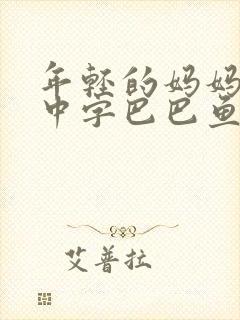 年轻的妈妈
中字巴巴鱼
艾普拉